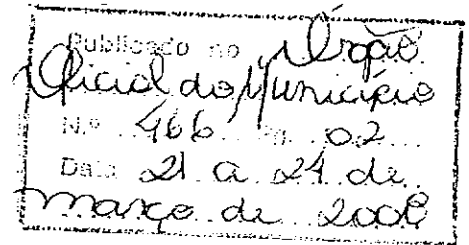 Publicado no Órgão
Oficial do Município
N.º 466 Pg. 02
Data 21 a 24 de
março de 2008